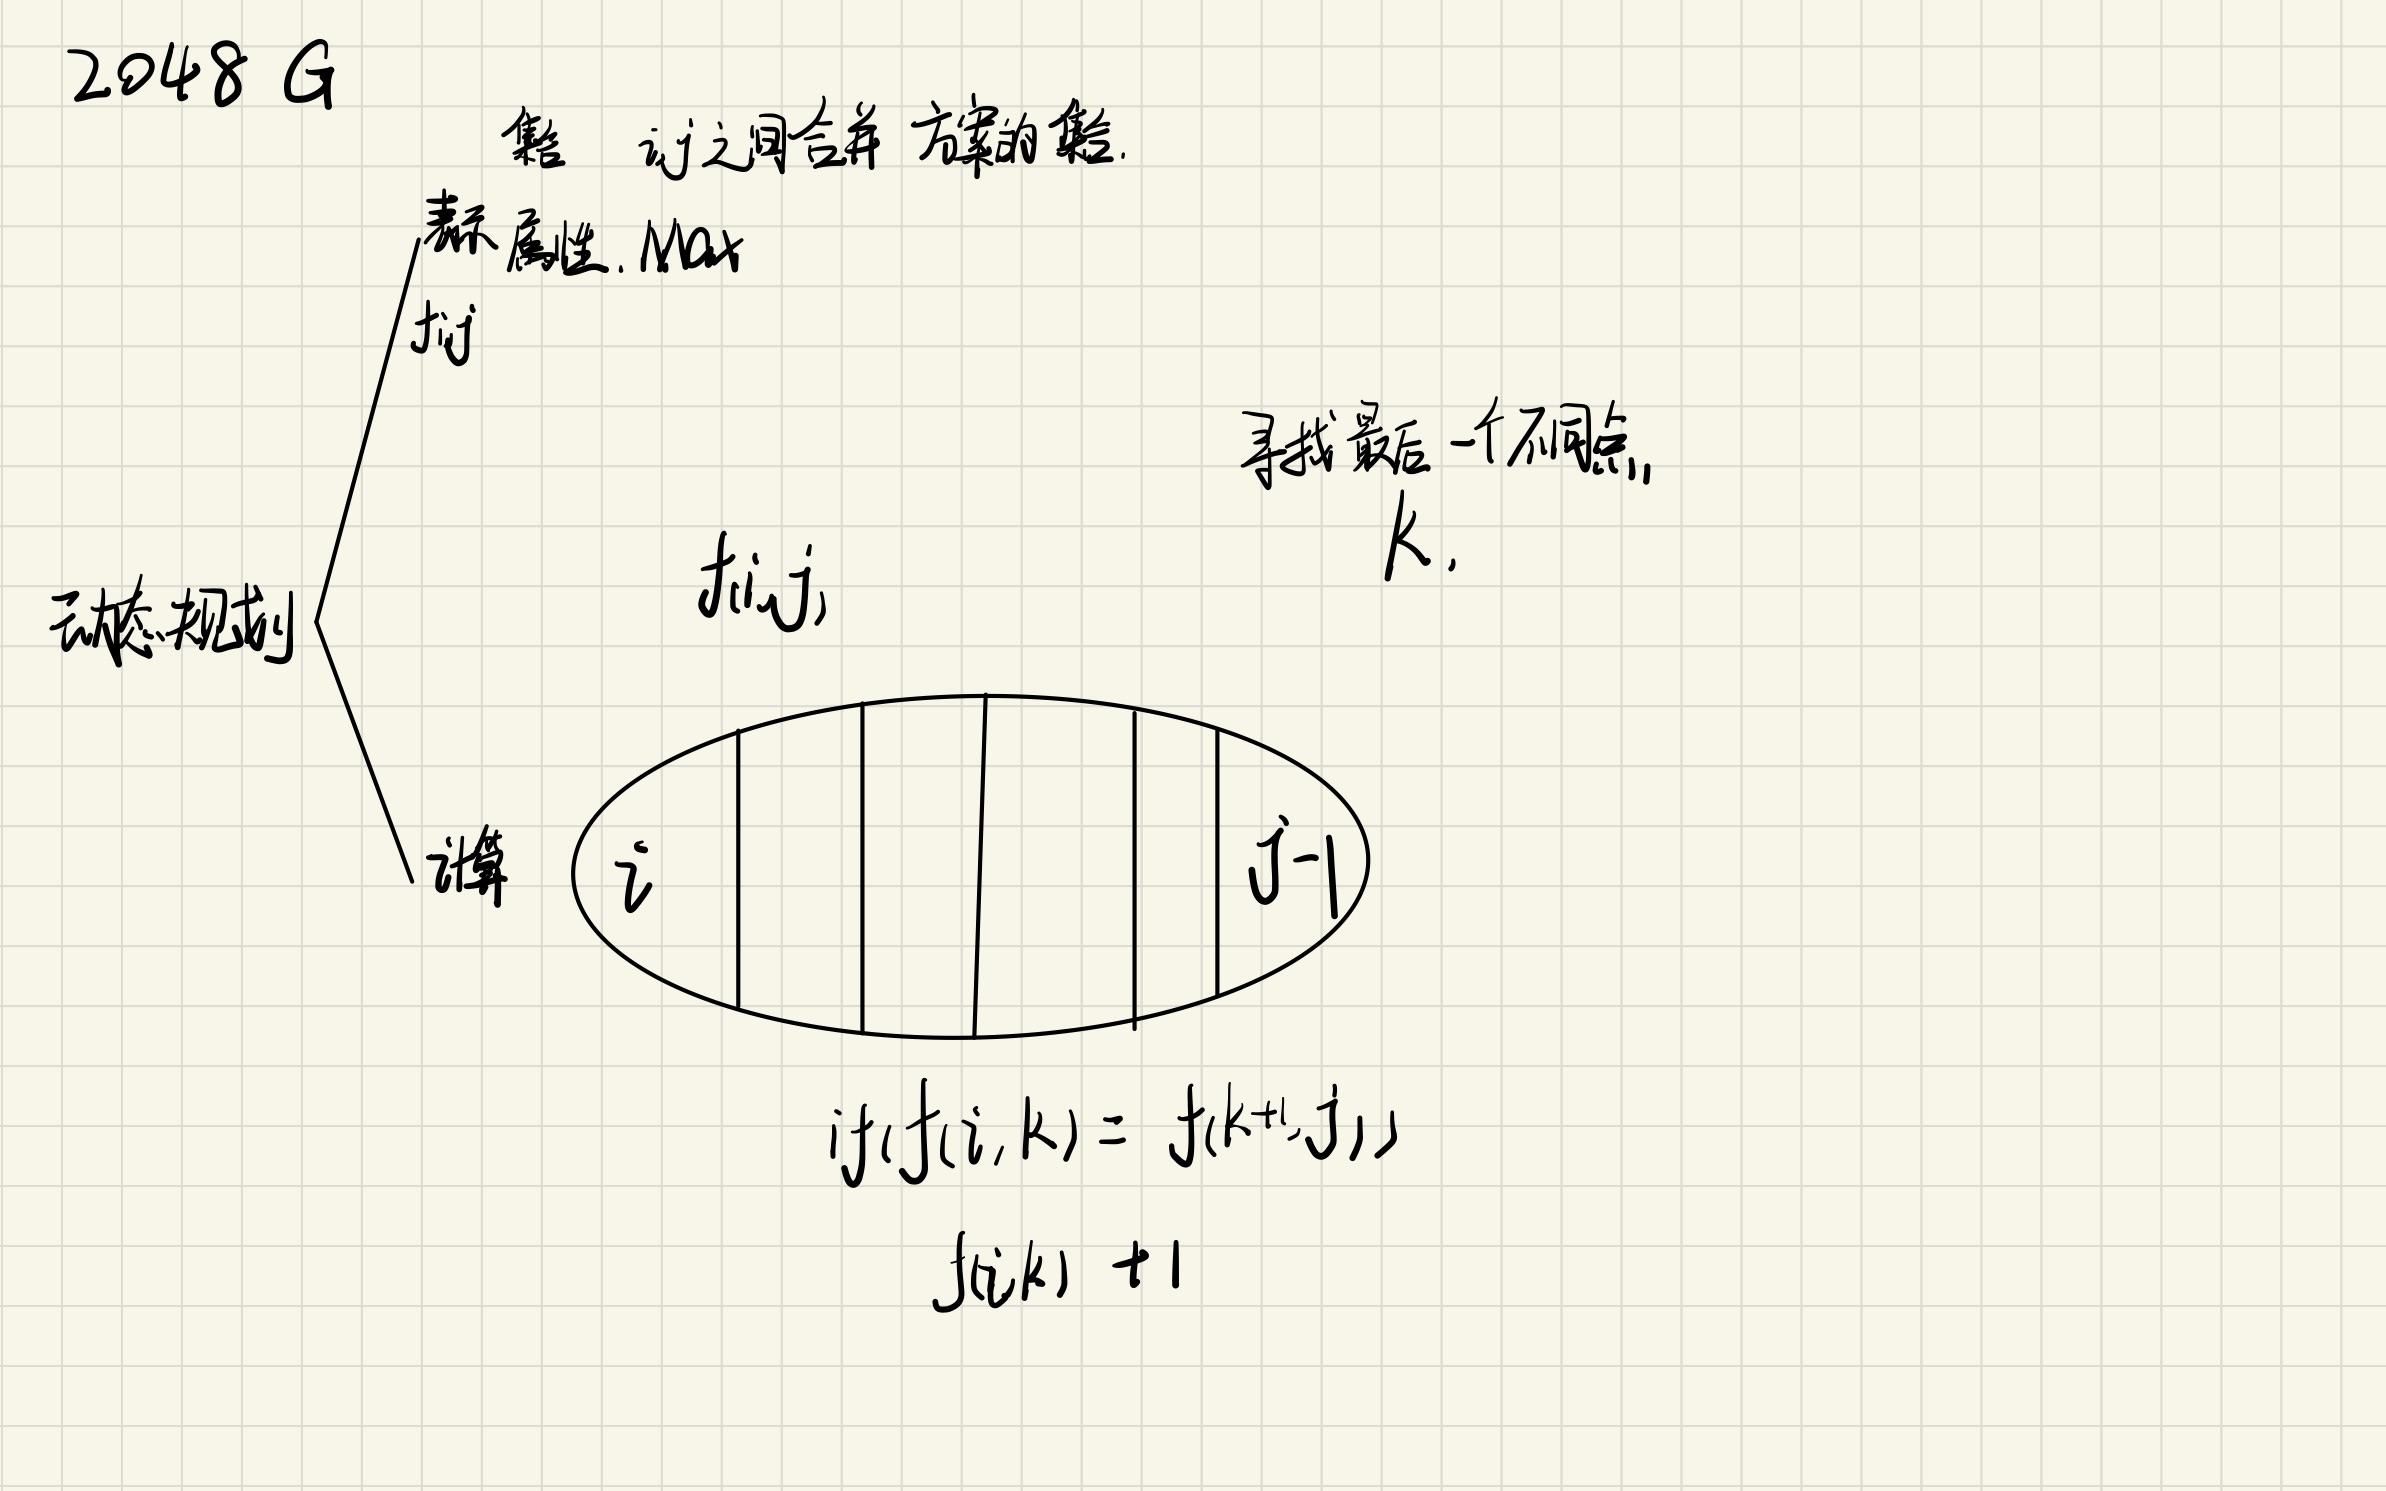 2048 G
集合 i j 之间合并方案的集合.
表示 属性. Max
f i j
寻找最后一个不同点,
K.
f(i, j)
动态规划
计算
i
j-1
if(f(i, k) = f(k+1, j))
f(i, k) +1